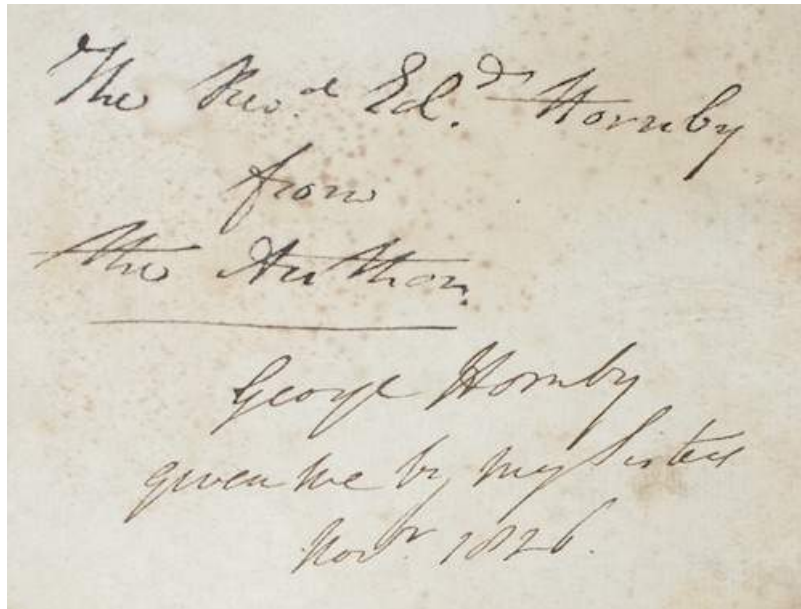 The Rev.d Ed.d Hornby
from
the Author.
George Hornby
given me by my Sisters
Novr 1826.